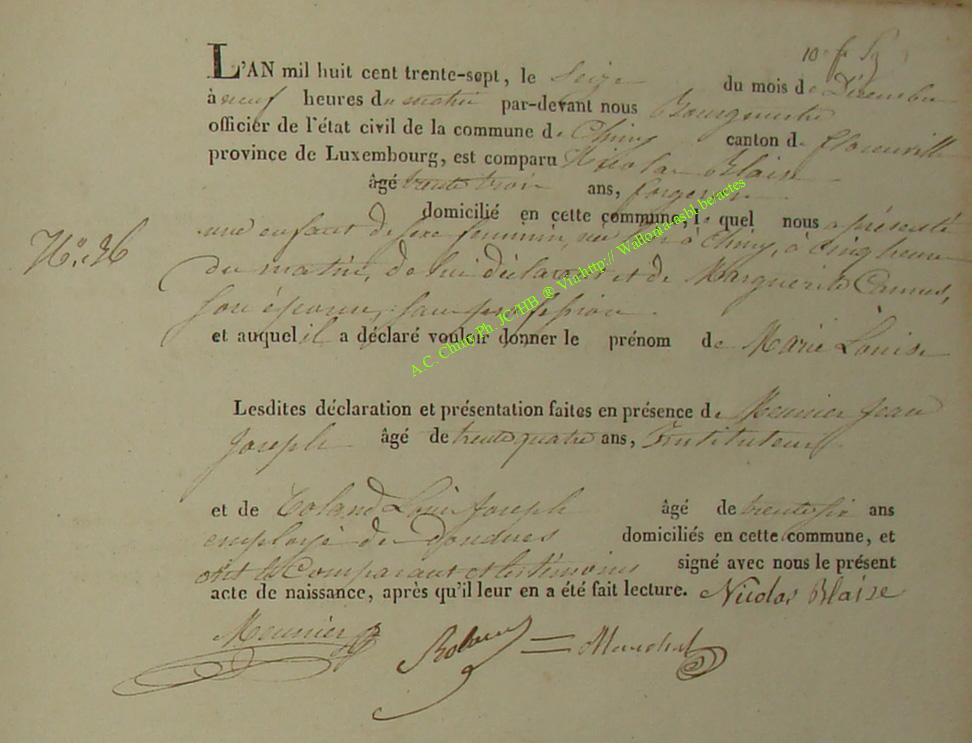 L'AN mil huit cent trente-sept, le Seize du mois de Décembre
à neuf heures du matin par-devant nous Bourgmestre
officier de l'état civil de la commune de Chiny canton de florenville
province de Luxembourg, est comparu Nicolas Blaise
âgé trente trois ans, forgeron
domicilié en cette commune, le quel nous a présenté
N.° 36
une enfant du sexe feminin, née à Chiny, à cinq heures
du matin, de lui déclarant et de Marguerite Camus,
son épouse, sans profession.
et auquel il a déclaré vouloir donner le prénom de Marie Louise
Lesdites déclaration et présentation faites en présence de Meunier Jean
Joseph âgé de trente quatre ans, Instituteur
et de Roland Louis Joseph âgé de trente six ans
employé de Douanes domiciliés en cette commune, et
ont le Comparant et les témoins signé avec nous le présent
acte de naissance, après qu'il leur en a été fait lecture. Nicolas Blaise
Meunier Roland Maréchal
A.C. Chiny Ph. JC/HB ® Via http://Wallonia-asbl.be/actes